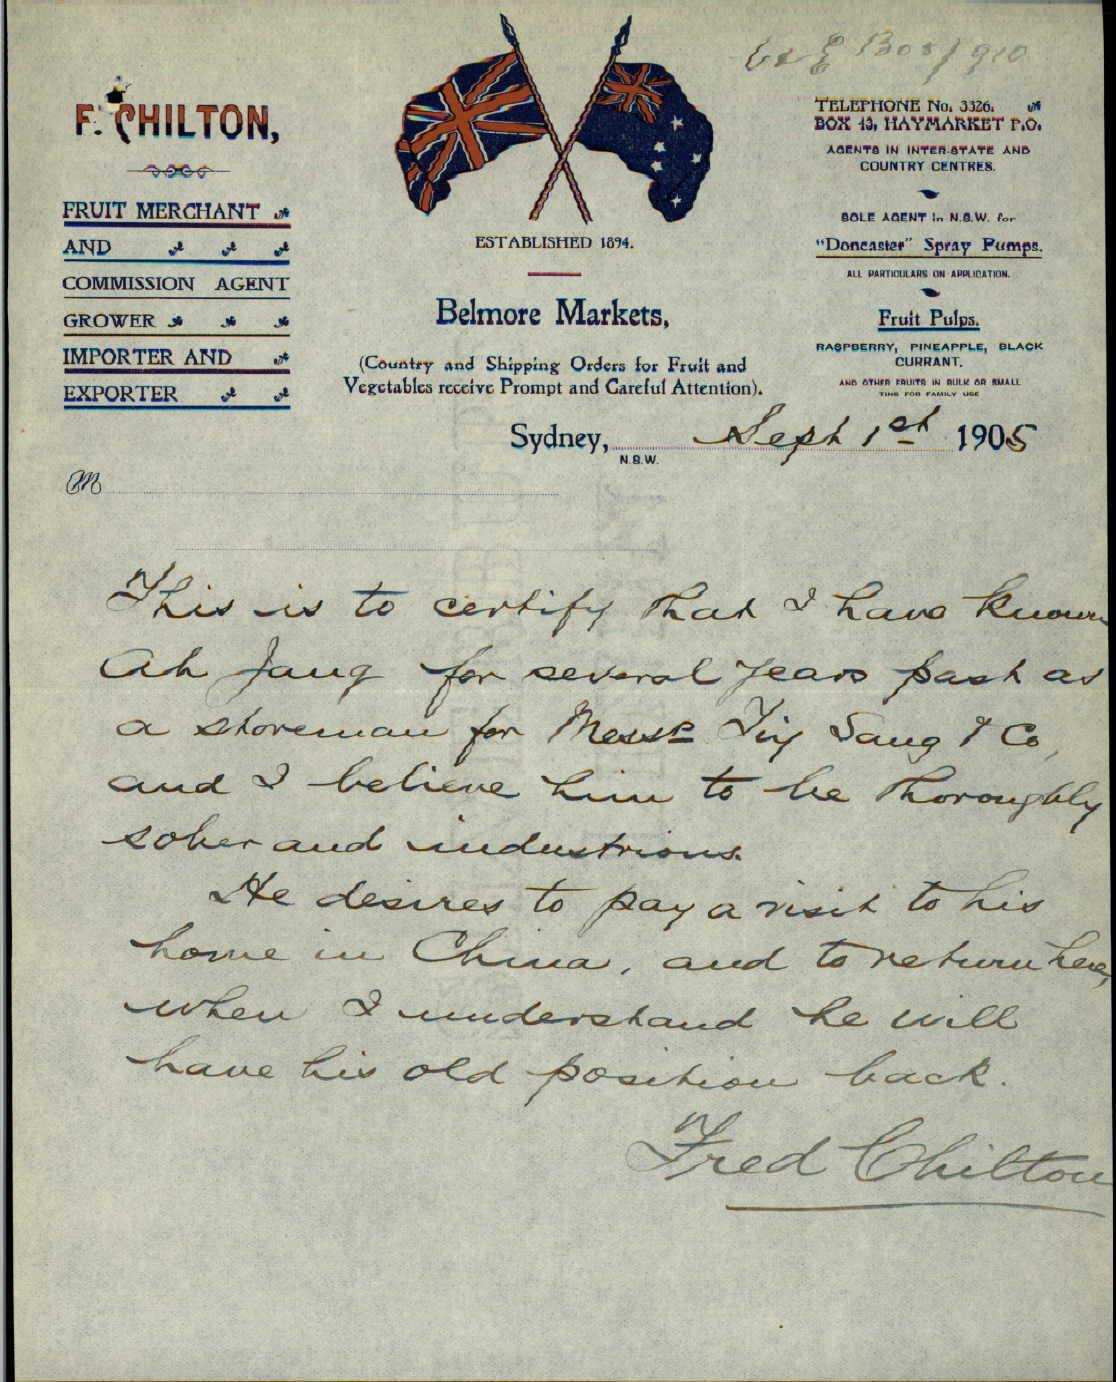 F. CHILTON,
FRUIT MERCHANT
AND
COMMISSION AGENT
GROWER
IMPORTER AND
EXPORTER
ESTABLISHED 1894.
Belmore Markets,
(Country and Shipping Orders for Fruit and
Vegetables receive Prompt and Careful Attention).
TELEPHONE No. 3326.
BOX 43, HAYMARKET P.O.
AGENTS IN INTER-STATE AND
COUNTRY CENTRES.
SOLE AGENT in N.S.W. for
"Doncaster" Spray Pumps.
ALL PARTICULARS ON APPLICATION.
Fruit Pulps.
RASPBERRY, PINEAPPLE, BLACK
CURRANT.
AND OTHER FRUITS IN BULK OR SMALL
TINS FOR FAMILY USE
Sydney, Sept 1st 1905
N.S.W.
M
This is to certify that I have known
Ah Jang for several years past as
a storeman for Messrs Tiy Sang & Co,
and I believe him to be thoroughly
sober and industrious.
He desires to pay a visit to his
home in China, and to return here,
when I understand he will
have his old position back.
Fred Chilton